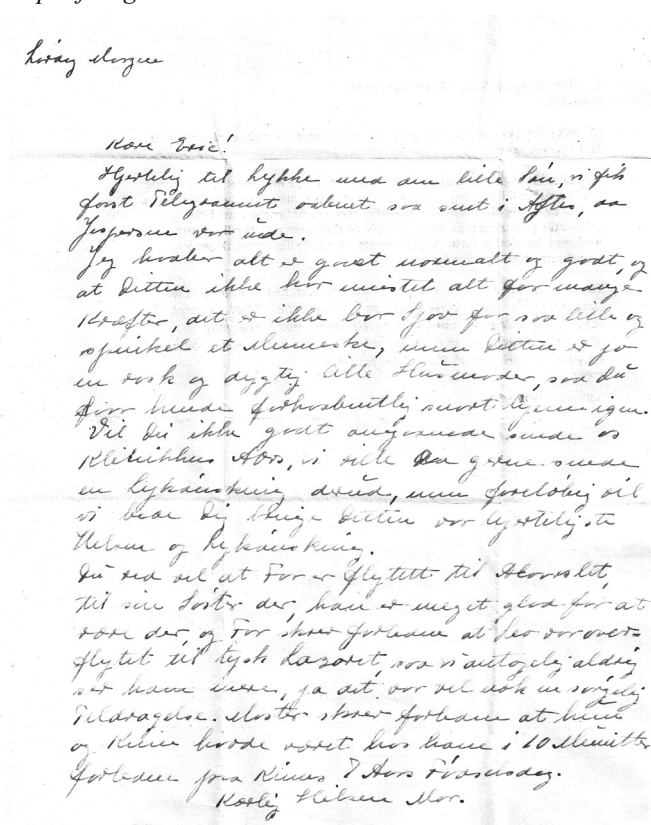 Lørdag Morgen
Kære Eric!
Hjertelig til Lykke med den lille Søn, vi fik
først Telegrammet aabnet saa sent i Aftes, da
Jespersen var ude.
Jeg haaber alt er gaaet normalt og godt, og
at Ditten ikke har mistet alt for mange
Kræfter, det er ikke bar Sjov for saa lille og
spinkel et Menneske, men Ditten er jo
en rask og dygtig lille Husmoder, saa du
faar hende forhaabentlig snart hjem igen.
Vil Du ikke godt omgaaende sende os
Klinikkens Adrs, vi ville gerne sende
en Lykønskning derud, men foreløbig vil
vi bede Dig bringe Ditten vor hjerteligste
Hilsen og Lykønskning.
Du ved vel at Far er flyttet til
til sin Søster der, han er meget glad for at
være der, og Far skrev forleden at Leo var over-
flyttet til tysk Lazaret, saa vi antagelig aldrig
ser ham mere, ja det var vel nok en sørgelig
Tildragelse. Moster skrev forleden at hun
og havde været hos ham i 10 Minutter
forleden paa 7 Aars Fødselsdag.
Kærlig Hilsen Mor.